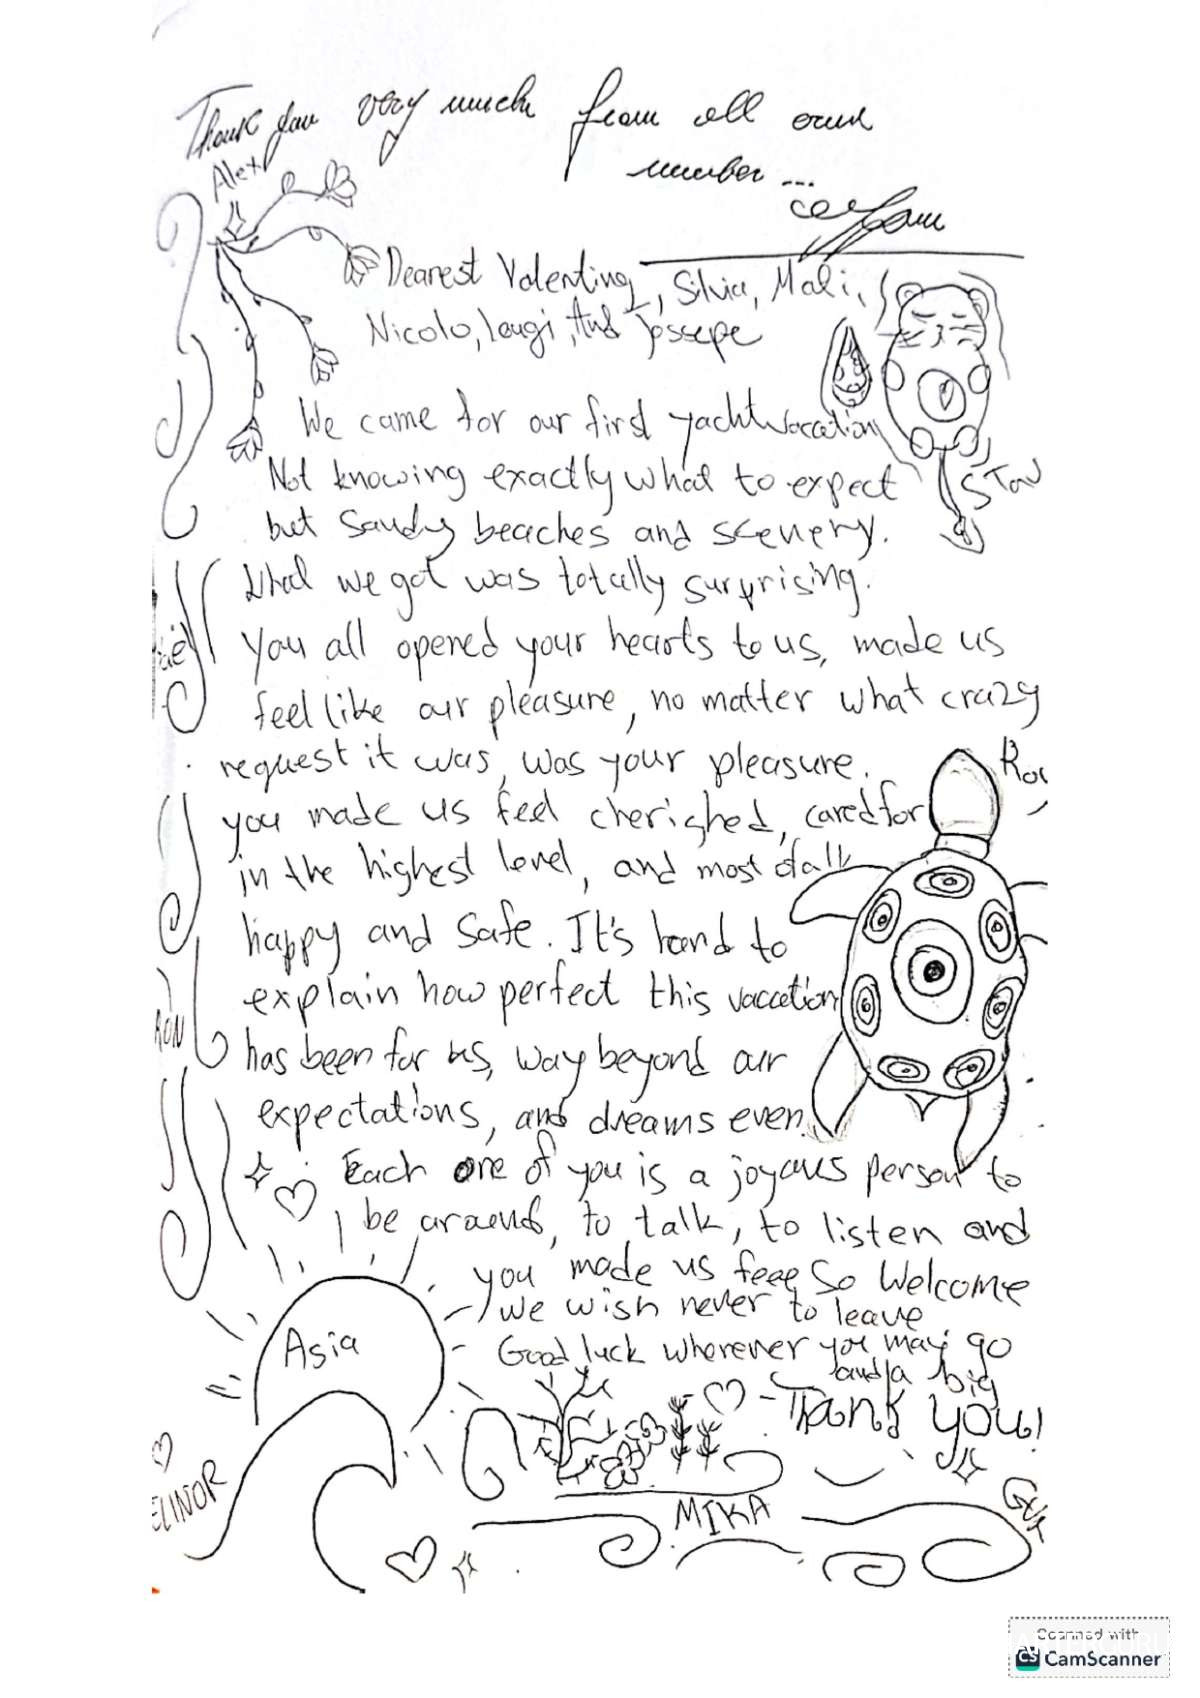 Thank you very much from all our
member...
Alex
Dearest Valentina, Silvia, Mali,
Nicolo, Leugi, And Jossepe
We came for our first yacht vaccation
Not knowing exactly what to expect
Stav
but Sandy beaches and scenery.
What we got was totally surprising.
You all opened your hearts to us, made us
feel like our pleasure, no matter what crazy
request it was, was your pleasure.
you made us feel cherished, cared for
in the highest level, and most of all
happy and safe. It's hard to
explain how perfect this vaccation
has been for us, way beyond our
RON
expectations, and dreams even.
Each one of you is a joyous person to
be around, to talk, to listen and
you made us feel so welcome
we wish never to leave
Asia
Good luck wherever you may go
and a big
Thank you!
ELINOR
MIKA
Scanned with
CS CamScanner